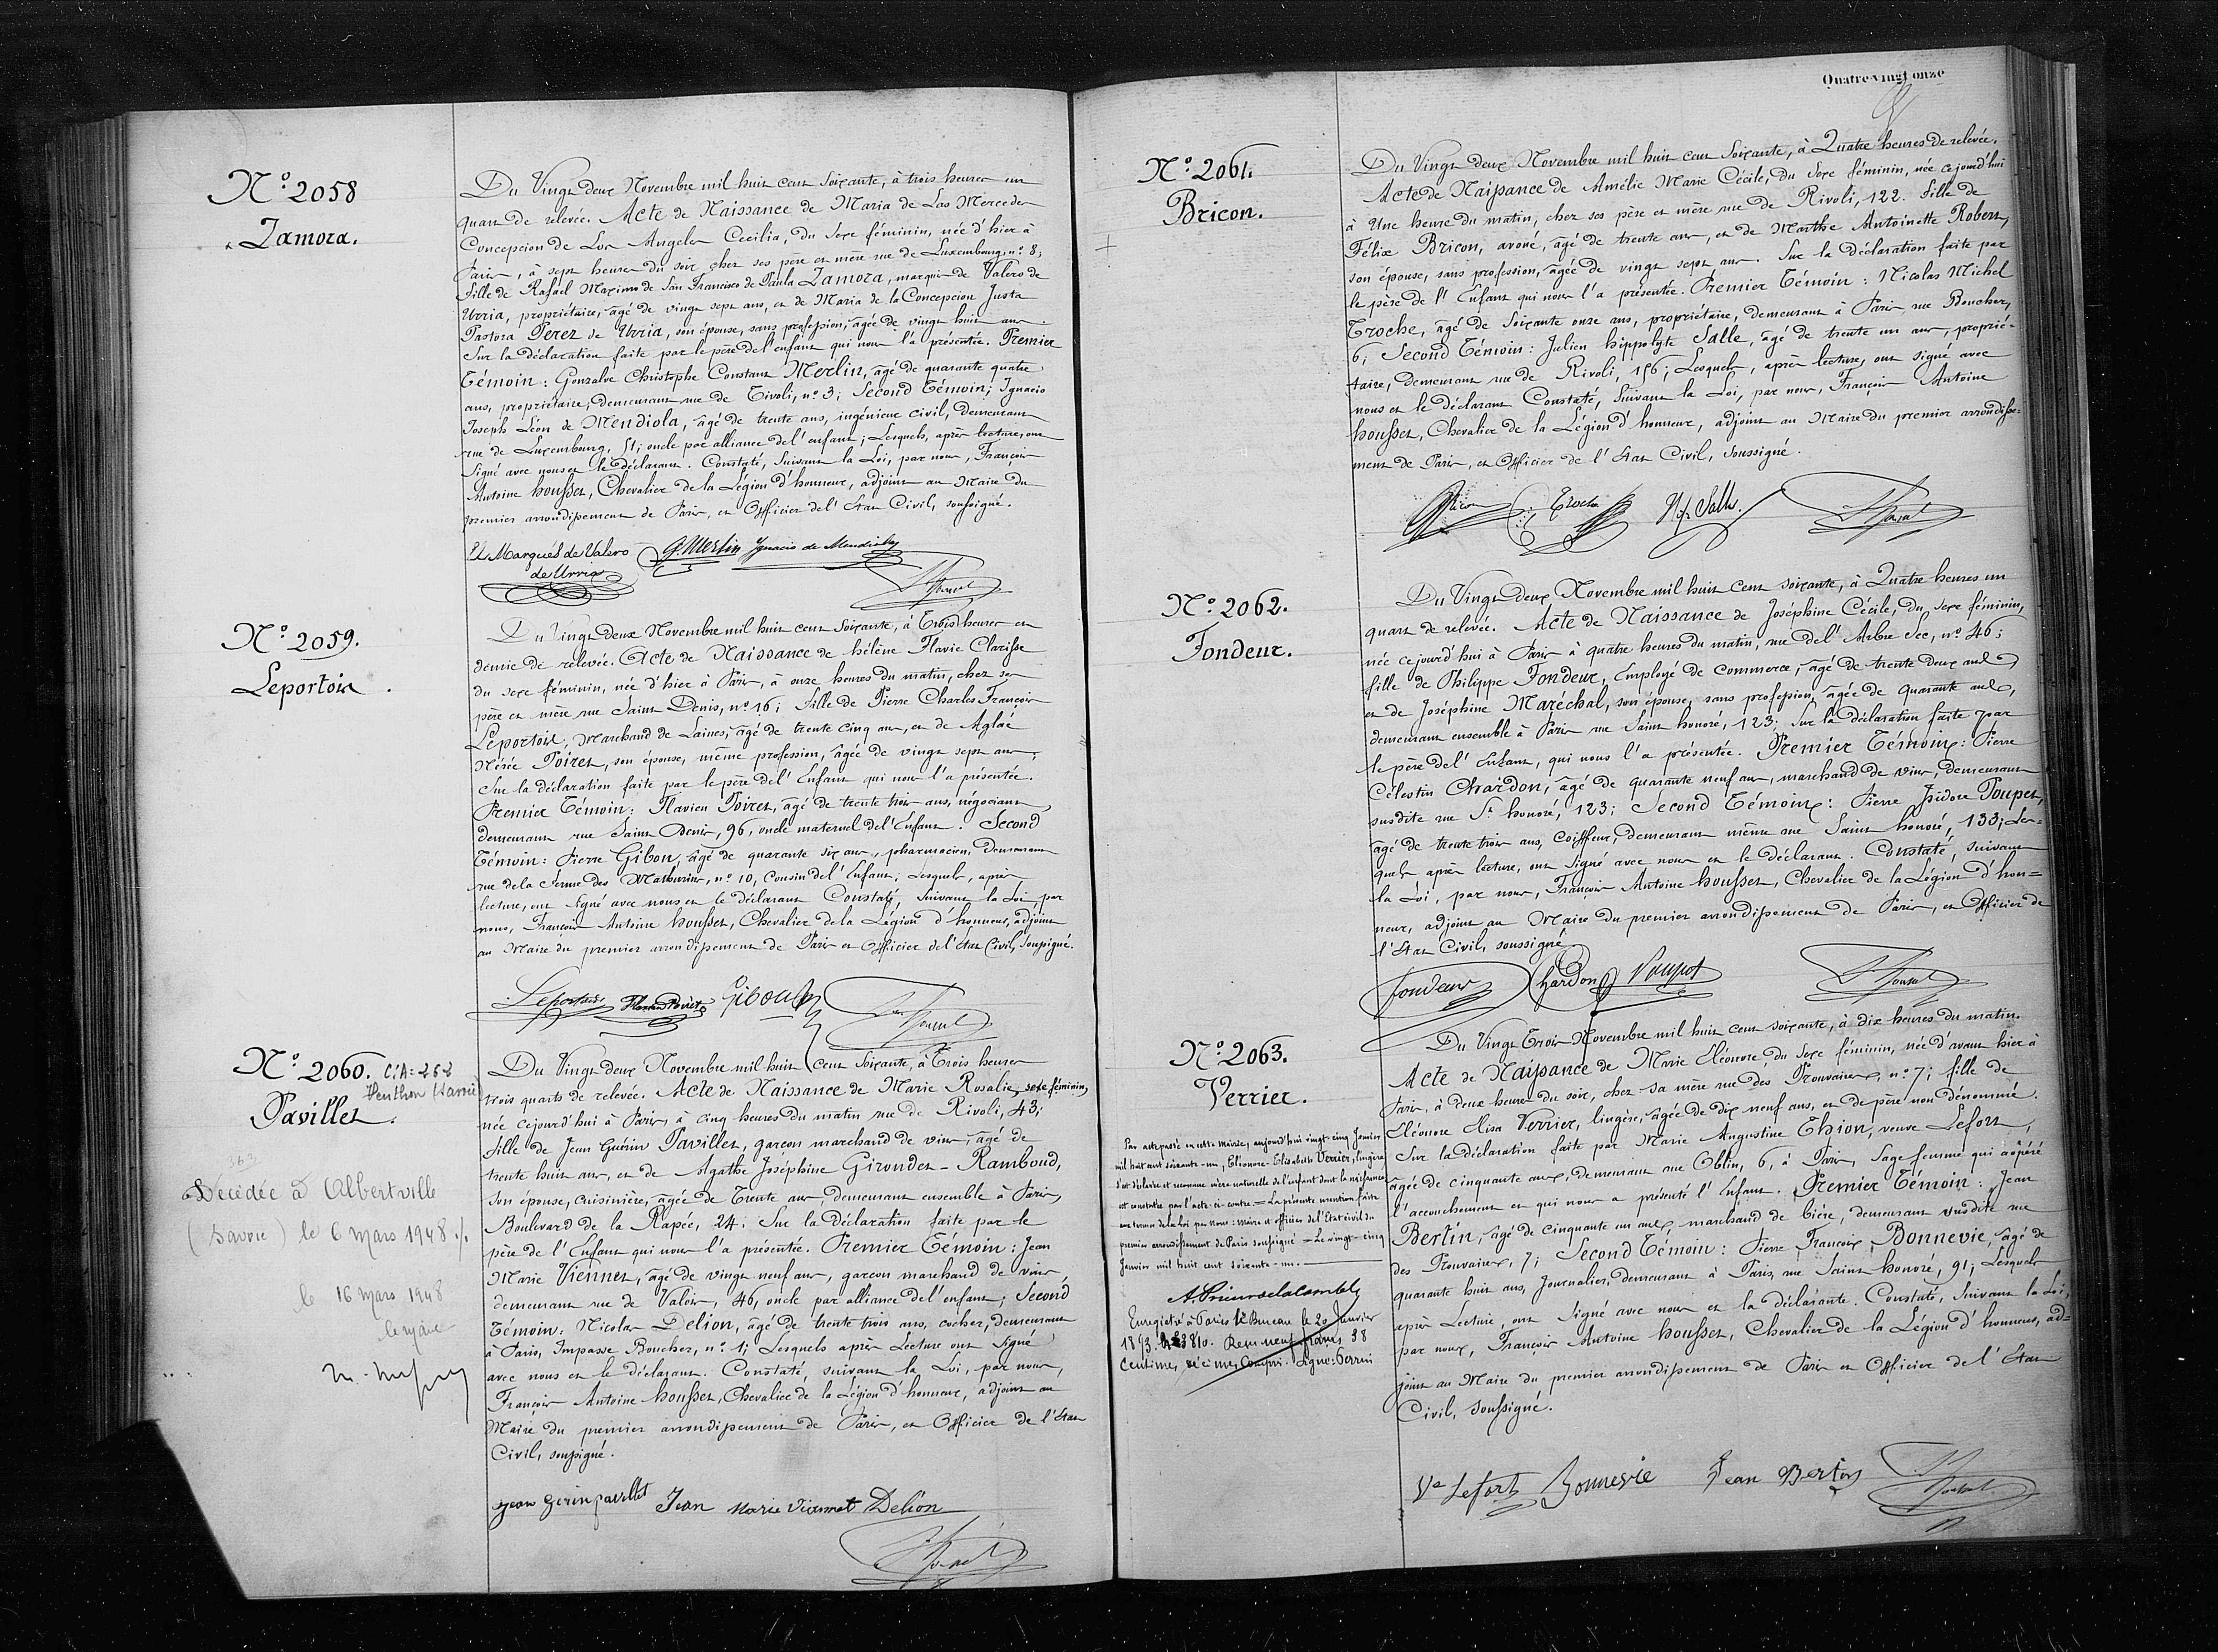 Nº 2058
Zamora.
Du Vingt deux Novembre mil huit cent soixante, à trois heures un
quart de relevée. Acte de Naissance de Maria de Las Mercedes
Concepcion de Los Angeles Cecilia, du sexe féminin, née d'hier à
Paris, à sept heures du soir chez ses père et mère rue de Luxembourg, nº 8;
fille de Rafael Maximo de San Francisco de Paula Zamora, marquis de Valero de
Urria, propriétaire, âgé de vingt sept ans, et de Maria de la Concepcion Justa
Pastora Perez de Urria, son épouse, sans profession, âgée de vingt huit ans.
Sur la déclaration faite par le père de l'enfant qui nous l'a présentée. Premier
Témoin: Gonzalve Christophe Constant Merlin, âgé de quarante quatre
ans, propriétaire, demeurant rue de Tivoli, nº 3; Second Témoin; Ignacio
Joseph Léon de Mendiola, âgé de trente ans, ingénieur civil, demeurant
rue de Luxembourg, 51; oncle par alliance de l'enfant; Lesquels, après lecture, ont
signé avec nous et le déclarant. Constaté, suivant la Loi, par nous, François
Antoine housset, Chevalier de la Légion d'honneur, adjoint au Maire du
premier arrondissement de Paris, et Officier de l'Etat Civil, soussigné.
El Marqués de Valero G. Merlin Ygnacio de Mendiola
de Urria
Nº 2059.
Leportois.
Du Vingt Deux Novembre mil huit cent soixante, à Trois heures et
demie de relevée. Acte de Naissance de hélène Flavie Clarisse
du sexe féminin, née d'hier à Paris, à onze heures du matin, chez ses
père et mère rue Saint Denis, nº 16; fille de Pierre Charles François
Leportois, Marchand de Laines, âgé de trente cinq ans, et de Aglaé
Nérée Poiret, son épouse, même profession, âgée de vingt sept ans;
Sur la déclaration faite par le père de l'Enfant qui nous l'a présentée.
Premier Témoin: Flavien Poiret, âgé de trente trois ans, négociant,
demeurant rue Saint Denis, 96, oncle maternel de l'Enfant. Second
Témoin: Pierre Gibon, âgé de quarante six ans, pharmacien, demeurant
rue de la Ferme des Mathurins, nº 10, Cousin de l'Enfant; Lesquels, après
lecture, ont signé avec nous et le déclarant Constaté, suivant la Loi, par
nous, François Antoine housset, Chevalier de la Légion d'honneur, adjoint
au Maire du premier arrondissement de Paris et Officier de l'Etat Civil, soussigné.
Leportois Flavien Poiret Gibon
Nº 2060. C.A = 252
Venthon (Savoie)
Pavillet.
363
Décédée à Albertville
(Savoie) le 6 mars 1948 ./.
le 16 mars 1948
Du Vingt deux Novembre mil huit cent soixante, à Trois heures
trois quarts de relevée. Acte de Naissance de Marie Rosalie, sexe féminin,
née cejourd'hui à Paris à cinq heures du matin rue de Rivoli, 43;
fille de Jean Guérin Pavillet, garçon marchand de vins, âgé de
trente huit ans, et de Agathe Joséphine Girondet - Ramboud,
son épouse, cuisinière, âgée de Trente ans, demeurant ensemble à Paris,
Boulevard de la Rapée, 24. Sur la déclaration faite par le
père de l'Enfant qui nous l'a présentée. Premier Témoin: Jean
Marie Viennet, âgé de vingt neuf ans, garçon marchand de vins,
demeurant rue de Valois, 46, oncle par alliance de l'enfant; Second
Témoin: Nicolas Delion, âgé de trente trois ans, cocher, demeurant
à Paris, Impasse Boucher, nº 1; Lesquels après Lecture ont signé
avec nous et le déclarant. Constaté, suivant la Loi, par nous,
François Antoine housset, Chevalier de la Légion d'honneur, adjoint au
Maire du premier arrondissement de Paris, et Officier de l'Etat
Civil, soussigné.
Jean Gerin pavillet Jean Marie Viannet Delion
Quatre vingt onze
Nº 2061.
Bricon.
Du Vingt deux Novembre mil huit cent soixante, à Quatre heures de relevée.
Acte de Naissance de Amélie Marie Cécile, du sexe féminin, née cejourd'hui
à Une heure du matin, chez ses père et mère rue de Rivoli, 122. fille de
Félix Bricon, avoué, âgé de trente ans, et de Marthe Antoinette Robert,
son épouse, sans profession, âgée de vingt sept ans. Sur la déclaration faite par
le père de l'Enfant qui nous l'a présentée. Premier Témoin: Nicolas Michel
Troche, âgé de soixante onze ans, propriétaire, demeurant à Paris rue Boucher,
6; Second Témoin: Julien hippolyte Salle, âgé de trente un ans, proprié-
taire, demeurant rue de Rivoli, 156; Lesquels, après lecture, ont signé avec
nous et le déclarant Constaté, suivant la Loi, par nous, François Antoine
housset, Chevalier de la Légion d'honneur, adjoint au Maire du premier arrondisse-
ment de Paris, et Officier de l'Etat Civil, soussigné.
Bricon Troche Hip. Salle
Nº 2062.
Fondeur.
Du Vingt Deux Novembre mil huit cent soixante, à Quatre heures un
quart de relevée. Acte de Naissance de Joséphine Cécile, du sexe féminin,
née cejourd'hui à Paris à quatre heures du matin, rue de l'Arbre Sec, nº 46;
fille de Philippe Fondeur, Employé de commerce, âgé de trente deux ans
et de Joséphine Maréchal, son épouse, sans profession, âgée de quarante ans,
demeurant ensemble à Paris rue Saint honoré, 123; Sur la déclaration faite par
le père de l'Enfant, qui nous l'a présentée. Premier Témoin: Pierre
Célestin Chardon, âgé de quarante neuf ans, marchand de vins, demeurant
susdite rue St honoré, 123; Second Témoin: Pierre Isidore Poupet,
âgé de trente trois ans, coiffeur, demeurant même rue Saint honoré, 133; Les-
quels après lecture, ont signé avec nous et le déclarant. Constaté, suivant
la Loi, par nous, François Antoine housset, Chevalier de la Légion d'hon=
neur, adjoint au Maire du premier arrondissement de Paris, et Officier de
l'Etat Civil, soussigné
Fondeur Chardon Poupet
Nº 2063.
Verrier.
Par acte passé en cette Mairie, aujourd'hui vingt-cinq Janvier
mil huit cent soixante-un, Eléonore-Elisabeth Verrier, lingère
s'est déclarée et reconnue mère naturelle de l'enfant dont la naissance
est constatée par l'acte ci-contre. = La présente mention faite
aux termes de la loi par Nous: Maire et officier de l'Etat civil du
premier arrondissement de Paris soussigné = Le vingt-cinq
Janvier mil huit cent soixante-un.
Enregistré à Paris Bureau le 20 Janvier
1893. Reçu neuf francs 38
centimes, décimes compris. Signé: Perrin
Du Vingt Trois Novembre mil huit cent soixante, à dix heures du matin.
Acte de Naissance de Marie Eléonore du sexe féminin, née d'avant hier à
Paris, à deux heures du soir, chez sa mère rue des Prouvaires, nº 7; fille de
Eléonore Elisa Verrier, lingère, âgée de dix neuf ans, et de père non dénommé.
Sur la déclaration faite par Marie Augustine Thion, veuve Lefort,
âgée de cinquante ans, demeurant rue Oblin, 6, à Paris, Sage femme qui a opéré
l'accouchement et qui nous a présenté l'Enfant. Premier Témoin: Jean
Bertin, âgé de cinquante un ans, marchand de bière, demeurant susdite rue
des Prouvaires, 7; Second Témoin: Pierre François Bonnevie, âgé de
quarante huit ans, Journalier, demeurant à Paris, rue Saint honoré, 91; Lesquels
après Lecture, ont signé avec nous et la déclarante. Constaté, suivant la Loi,
par nous, François Antoine housset, Chevalier de la Légion d'honneur, ad=
joint au Maire du premier arrondissement de Paris et Officier de l'Etat
Civil, soussigné.
Ve Lefort Bonnevie Jean Bertin